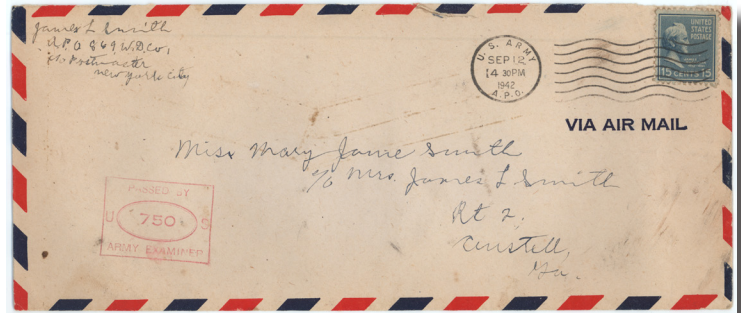 James L Smith
A.P.O 869, W.D.Co,
c/o Postmaster
new york city
U. S. ARMY
SEP 12
4 30PM
1942
A.P.O.
UNITED
STATES
POSTAGE
15 CENTS 15
VIA AIR MAIL
Miss Mary Jane Smith
c/o Mrs. James L Smith
Rt 2,
Austell,
Ga.
PASSED BY
U 750 S
ARMY EXAMINER